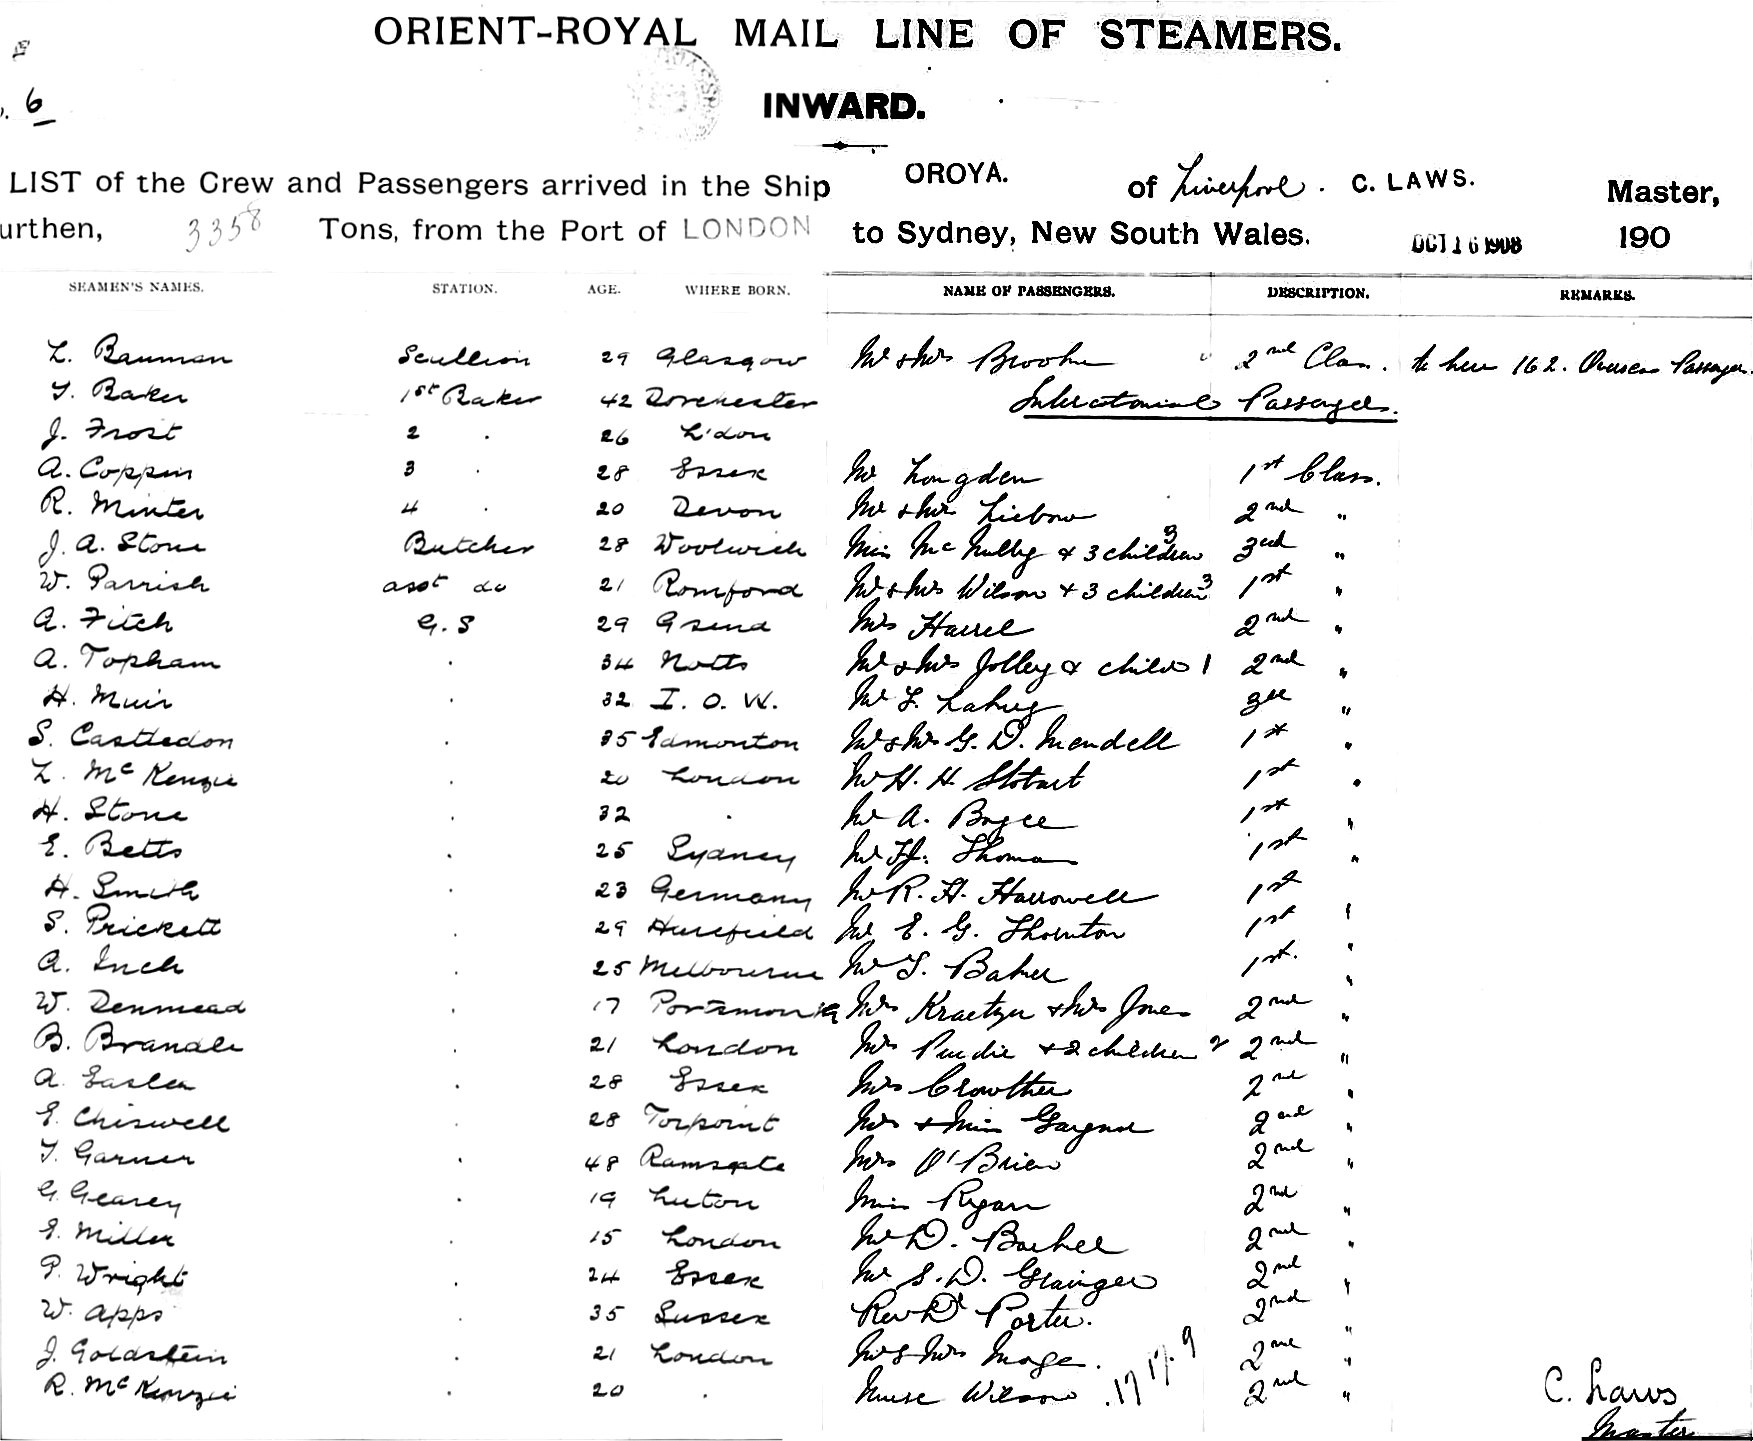 ORIENT-ROYAL MAIL LINE OF STEAMERS.
6
INWARD.
LIST of the Crew and Passengers arrived in the Ship OROYA. of Liverpool. C. LAWS. Master,
urthen, 3358 Tons, from the Port of LONDON to Sydney, New South Wales. OCT 16 1908 190
SEAMEN'S NAMES. STATION. AGE. WHERE BORN. NAME OF PASSENGERS. DESCRIPTION. REMARKS.
L. Bauman Scullion 29 Glasgow Mr & Mrs 2nd Class. to here 162. Oversea Passengers.
T. Baker 1st Baker 42 Dorchester Intercolonial Passengers.
J. Frost 2 26 L'don
A. Coppin 3 28 Essex Mr Longden 1st Class.
R. Minter 4 20 Devon Mr & Mrs Liebow 2nd "
J. A. Stone Butcher 28 Woolwich Miss McNulty & 3 children 3 3rd "
W. Parrish asst do 21 Romford Mr & Mrs Wilson & 3 children 3 1st "
A. Fitch G. S 29 Gsend Mrs 2nd "
A. Topham . 34 Notts Mr & Mrs Jolley & child 1 2nd "
H. Muir . 32 I. O. W. Mr 3rd "
S. Castledon . 35 Edmonton Mr & Mrs G. D. Mendell 1st "
L. McKenzie . 20 London Mr H. H. Stobart 1st "
H. Stone . 32 . Mr A. Boyce 1st "
E. Betts . 25 Sydney Mr Thomas 1st "
H. Smith . 23 Germany Mr R. H. Harrowell 1st
S. Prickett . 29 Mr E. G. Thornton 1st "
A. Inch . 25 Melbourne Mr T. Baker 1st. "
W. Denmead . 17 Mrs Kraetzer & Mrs Jones 2nd "
B. Brandle . 21 London Mrs Purdie & 2 children 2 2nd "
A. . 28 Essex Mrs Crowther 2nd "
E. Chiswell . 28 Torpoint Mrs & Miss 2nd "
T. Garner . 48 Ramsgate Mrs O'Brien 2nd "
G. Gearey . 19 Luton Miss Ryan 2nd "
E. Miller . 15 London Mr D. 2nd "
P. Wright . 24 Essex Mr S. D. Grainger 2nd "
W. Apps 35 Sussex Rev Dr Porter. 2nd "
J. Goldstein . 21 London Mr & Mrs 2nd "
R. McKenzie . 20 . Nurse Wilson 17 17. 9 2nd "
C. Laws
Master